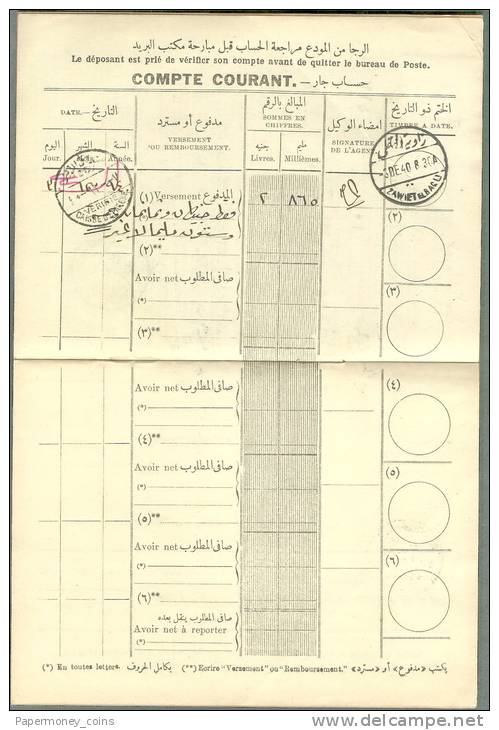 الرجا من المودع مراجعة الحساب قبل مبارحة مكتب البريد
Le déposant est prié de vérifier son compte avant de quitter le bureau de Poste.
COMPTE COURANT. — حساب جار
DATE.— التاريخ
اليوم الشهر السنة
Jour. Année.
مدفوع أو مسترد
VERSEMENT
OU REMBOURSEMENT.
المبالغ بالرقم
SOMMES EN
CHIFFRES.
جنيه مليم
Livres. Millièmes.
امضاء الوكيل
SIGNATURE
DE L'AGENT.
الختم ذو التاريخ
TIMBRE A DATE.
(١) Versement المدفوع
٢ ٨٦٥
فقط جنيهان وثمانمائة
وستون مليما لا غير
DE 40
ZAWIET EL BAQLI
(٢)**
(٢)
Avoir net صافى المطلوب
(*)
(٣)
(٣)**
Avoir net صافى المطلوب
(*)
(٤)
(٤)**
Avoir net صافى المطلوب
(*)
(٥)
(٥)**
Avoir net صافى المطلوب
(*)
(٦)
(٦)**
صافى المطلوب ينقل بعده
Avoir net à reporter
(*)
(*) En toutes letters. يكامل الحروف (**) Ecrire "Versement" ou "Remboursement." يكتب «مدفوع» أو «مسترد»
Papermoney_coins
delcampe.net